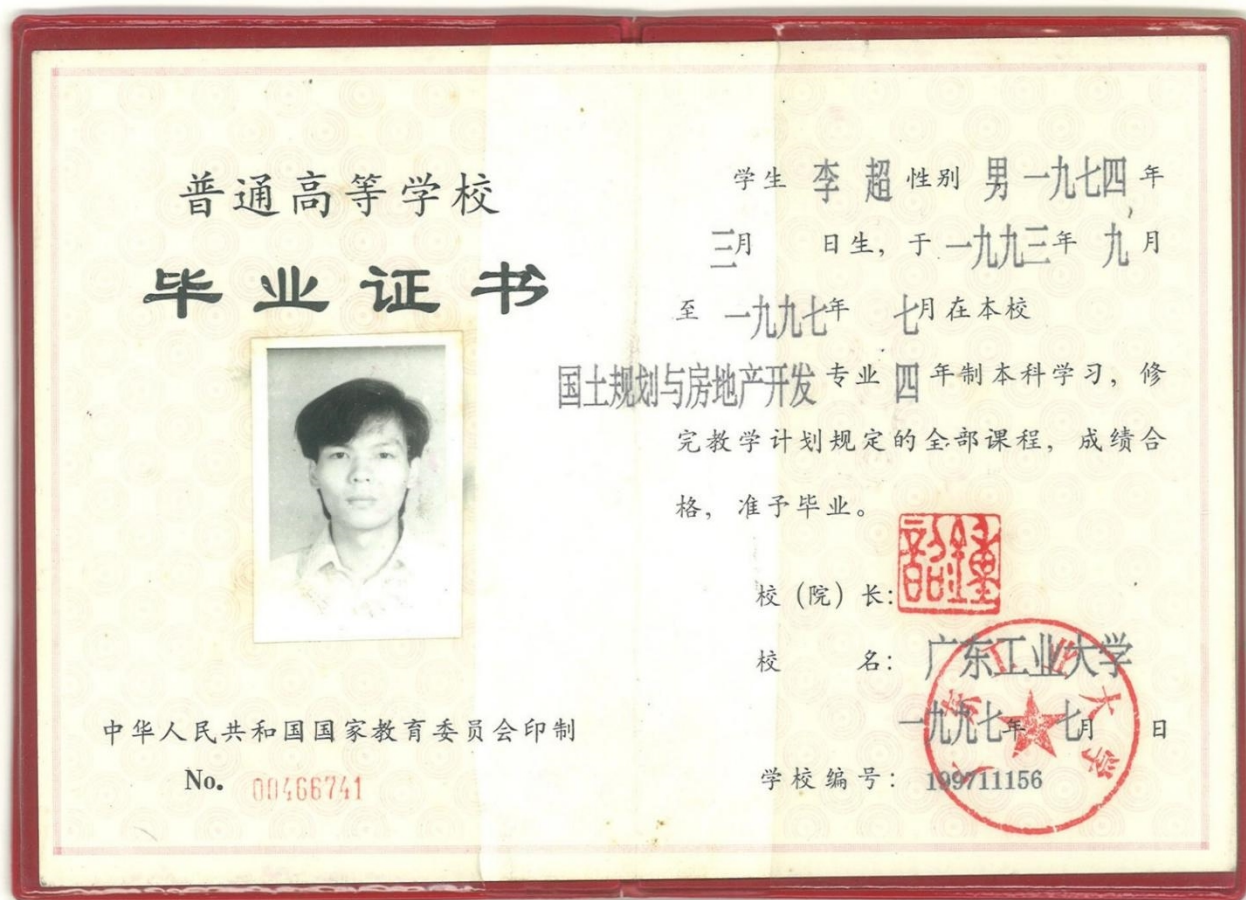 普通高等学校
毕业证书
中华人民共和国国家教育委员会印制
No. 00466741
学生 李 超 性别 男 一九七四年
三月 日生，于 一九九三年 九月
至 一九九七年 七月在本校
国土规划与房地产开发 专业 四 年制本科学习，修
完教学计划规定的全部课程，成绩合
格，准予毕业。
校（院）长：
校 名： 广东工业大学
一九九七年 七月 日
学校编号： 199711156
广东工业大学